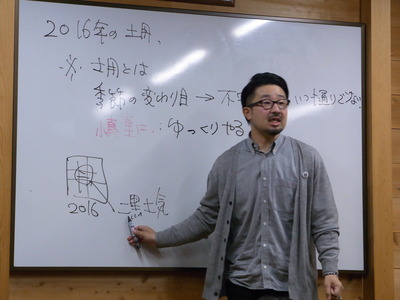 2016年の土用、
※土用とは
季節の変わり目 → 不 いつも通りどない
慎重に、:「ゆっくりやる
2016 二黒土気